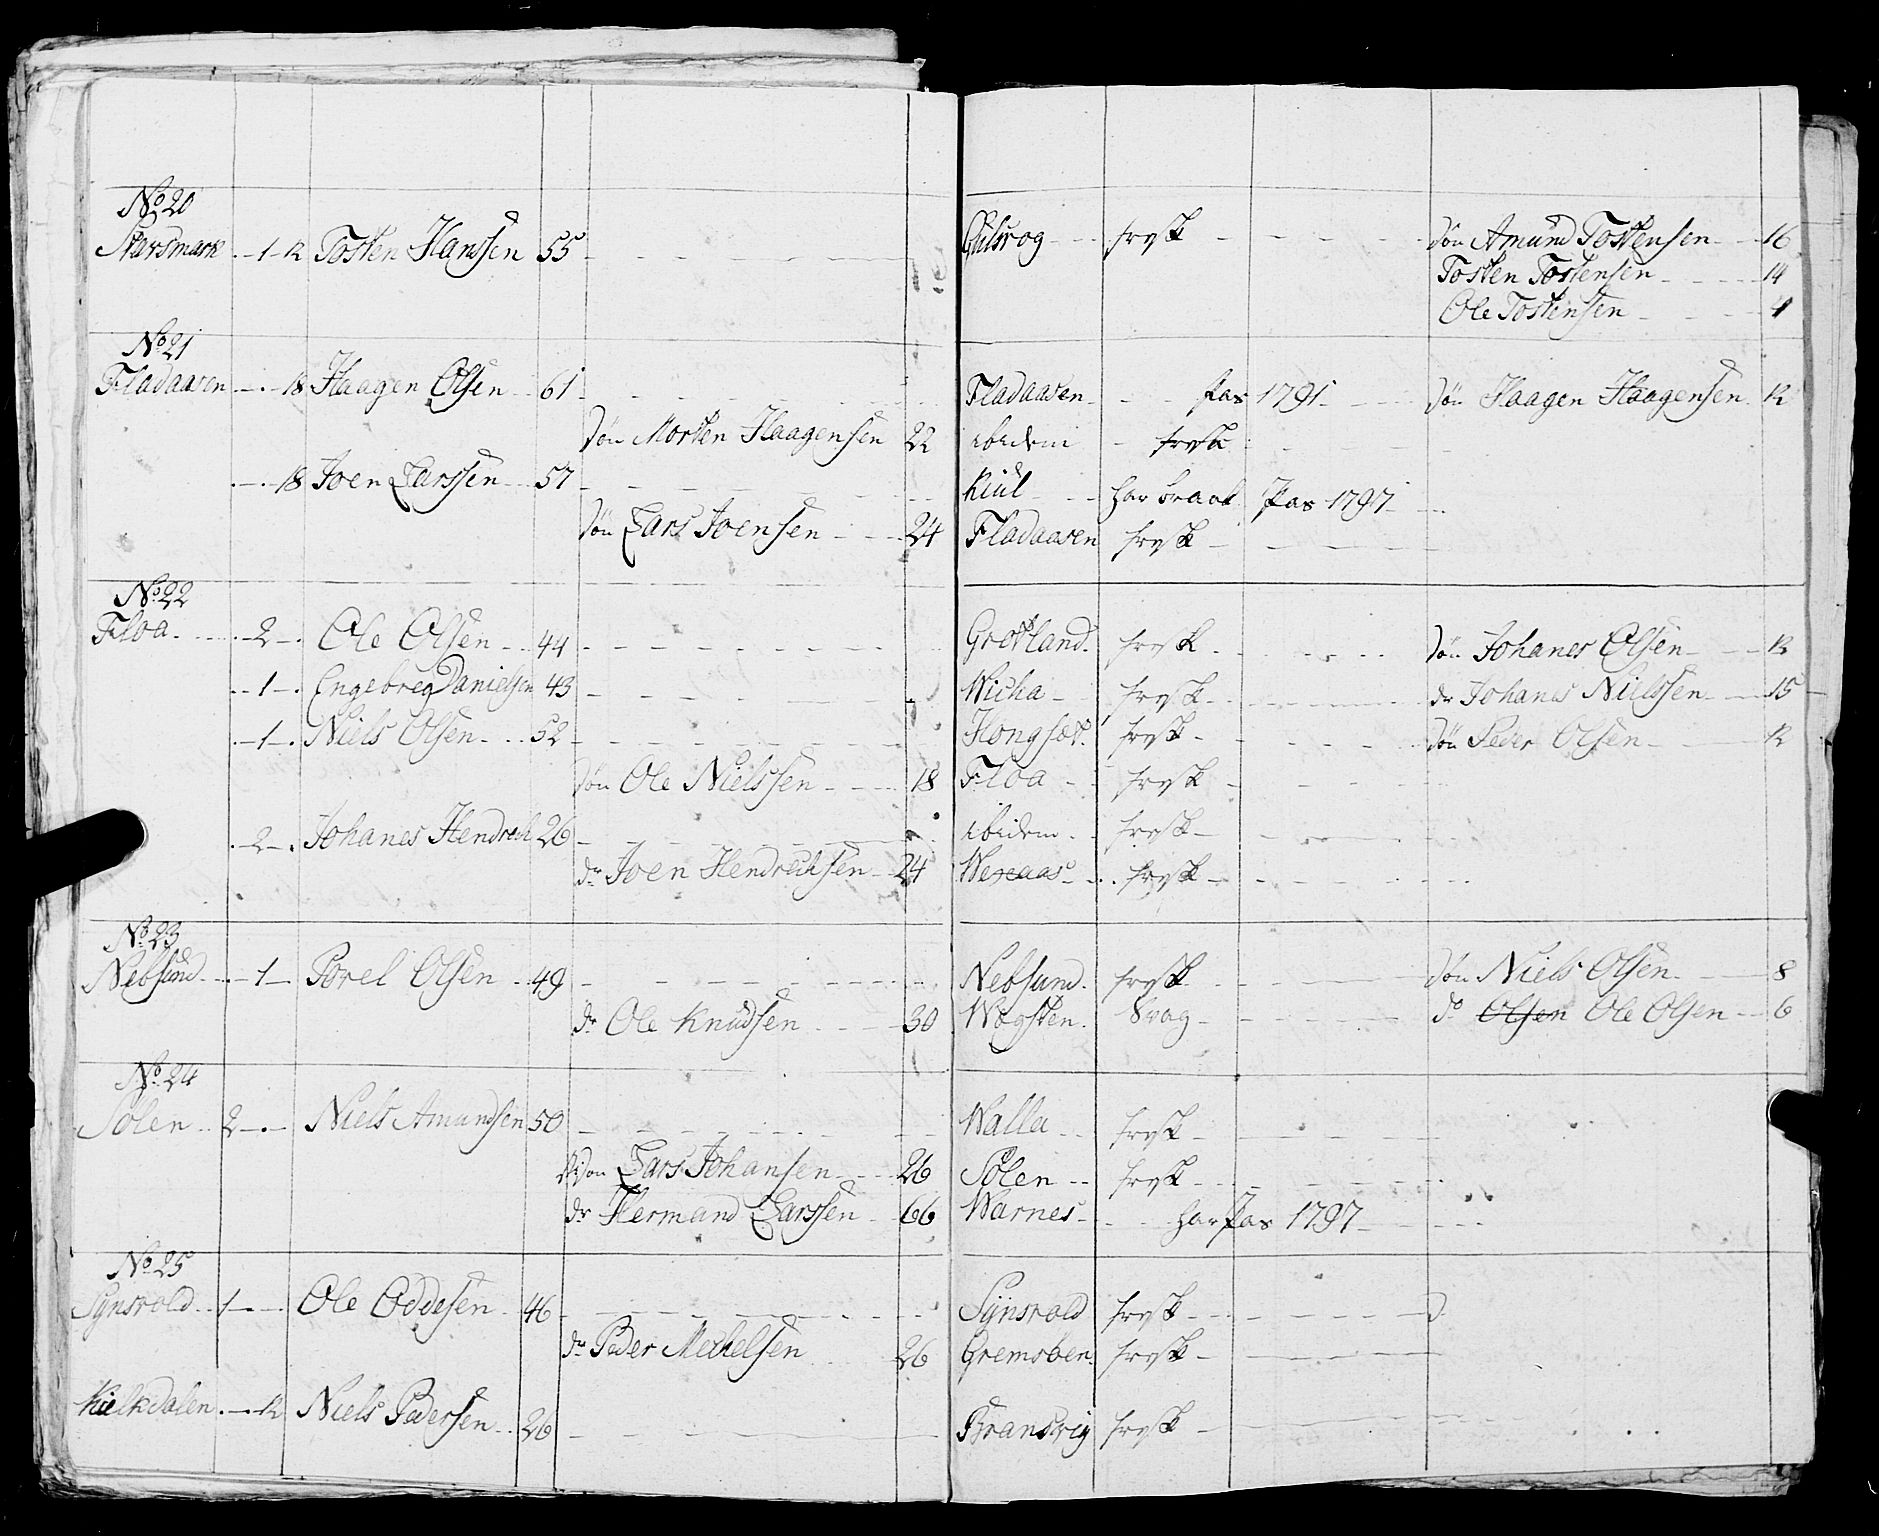 No 20
Starsmark 1 12 Tosten Hanssen 55 frysk Søn Amund Tostensen 16
Tosten Tostensen 14
Ole Tostensen 4
No 21
Fladaasen 18 Haagen Olsen 61 Fladaasen Pas 1791 Søn Haagen Haagensen 12
Søn Morten Haagensen 22 ibidem frysk
18 Joen Larssen 57 Kiul har braak Pas 1797
Søn Lars Joensen 24 Fladaasen frysk
No 22
Floa 2 Ole Olsen 44 Grotland frysk Søn Johanes Olsen 12
1 Engebreg Danielsen 43 Wicha frysk dr Johanes Nielssen 15
1 Niels Olsen 52 Hongsæt frysk Søn Peder Olsen 12
Søn Ole Nielssen 18 Floa frysk
2 Johanes Hendrech 26 ibidem frysk
dr Joen Hendrechsen 24 frysk
No 23
Nebsund 1 Povel Olsen 49 Nebsund frysk Søn Niels Olsen 8
dr Ole Knudsen 30 Wogsten Svag do Olsen Ole Olsen 6
No 24
Solen 2 Niels Amundsen 50 Walla frysk
Lars Johansen 26 Solen frysk
dr Hermand Larssen 66 Warnes har Pas 1797
No 25
Synsvold 1 Ole Oddesen 46 Synsvold frysk
dr Peder Mechelsen 26 Gremsben frysk
Kielkdalen 12 Niels Pedersen 26 Bransvig frysk